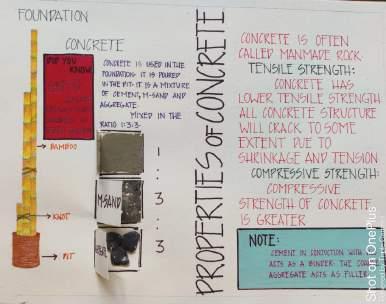 FOUNDATION
CONCRETE
DID YOU
KNOW:
CONCRETE IS USED IN THE
FOUNDATION. IT IS POURED
IN THE PIT. IT IS A MIXTURE
OF CEMENT, M-SAND AND
AGGREGATE.
MIXED IN THE
RATIO 1:3:3.
BAMBOO
KNOT
PIT
M-SAND
1
:
3
:
3
PROPERTIES OF CONCRETE
CONCRETE IS OFTEN
CALLED MANMADE ROCK
TENSILE STRENGTH:
CONCRETE HAS
LOWER TENSILE STRENGTH
ALL CONCRETE STRUCTURE
WILL CRACK TO SOME
EXTENT DUE TO
SHRINKAGE AND TENSION
COMPRESSIVE STRENGTH:
COMPRESSIVE
STRENGTH OF CONCRETE
IS GREATER
NOTE:
CEMENT IN CONJUCTION WITH
ACTS AS A BINDER. THE
AGGREGATE ACTS AS FILLER
Shot on OnePlus